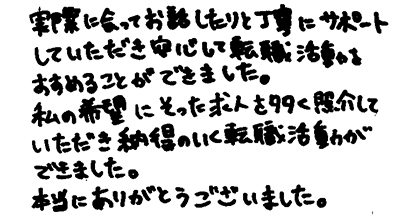 実際に会ってお話したりと丁寧にサポート
していただき安心して転職活動を
すすめることができました。
私の希望にそった求人を多く紹介して
いただき納得のいく転職活動が
できました。
本当にありがとうございました。